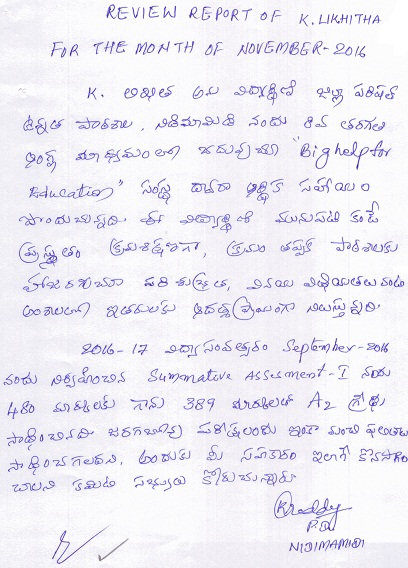 REVIEW REPORT OF K. LIKHITHA
FOR THE MONTH OF NOVEMBER-2016
K. లిఖిత అను విద్యార్థిని జిల్లా పరిషత్
ఉన్నత పాఠశాల, నిడిమామిడి నందు 8వ తరగతి
ఆంగ్ల మాధ్యమంలో చదువుచూ "Big help for
Education" సంస్థ ద్వారా ఆర్థిక సహాయం
పొందుచున్నది. ఈ విద్యార్థిని మునుపటి కంటే
ప్రస్తుతం క్రమశిక్షణగా, క్రమం తప్పక పాఠశాలకు
హాజరగుచూ పరిశుభ్రత, వినయ విధేయతలు వంటి
అంశాలలో ఇతరులకు ఆదర్శప్రాయంగా నిలుస్తున్నది.
2016-17 విద్యా సంవత్సరం September-2016
నందు నిర్వహించిన Summative Assessment-I నందు
480 మార్కులకు గాను 389 మార్కులతో A2 గ్రేడు
సాధించినది. జరగబోవు పరీక్షలందు ఇంకా మంచి ఫలితాలు
సాధించగలదని, అందుకు మీ సహకారం ఇలాగే కొనసాగించ
చాలని కమిటి సభ్యులు కోరుచున్నారు.
Reddy
NIDIMAMIDI